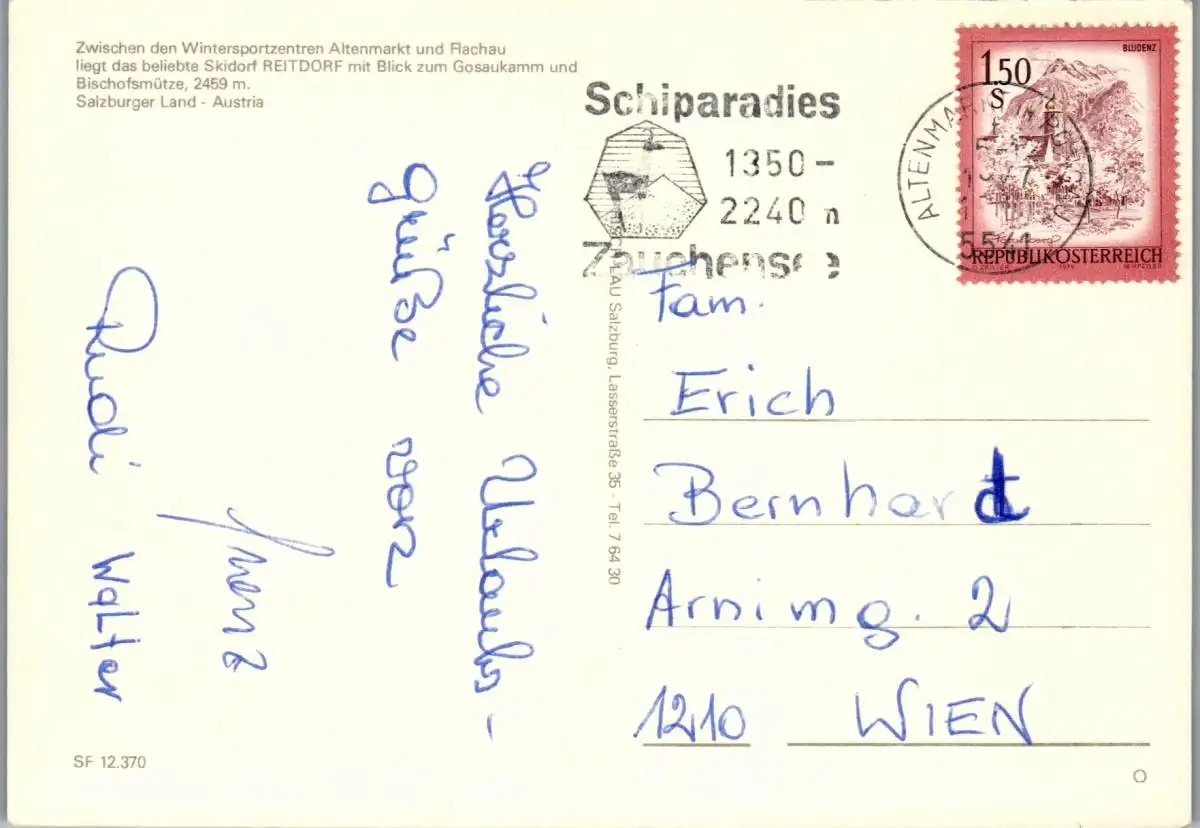 Zwischen den Wintersportzentren Altenmarkt und Flachau
liegt das beliebte Skidorf REITDORF mit Blick zum Gosaukamm und
Bischofsmütze, 2459 m.
Salzburger Land - Austria
Schiparadies
1350 -
2240 m
Zauchensee
BLUDENZ
1.50
S
REPUBLIK ÖSTERREICH
ALTENMARKT
5541
Herzliche Urlaubs-
grüße von
Rudi Walter
AU Salzburg, Lasserstraße 35 - Tel. 7 64 30
Fam.
Erich
Bernhart
Arnimg. 2
1210 WIEN
SF 12.370